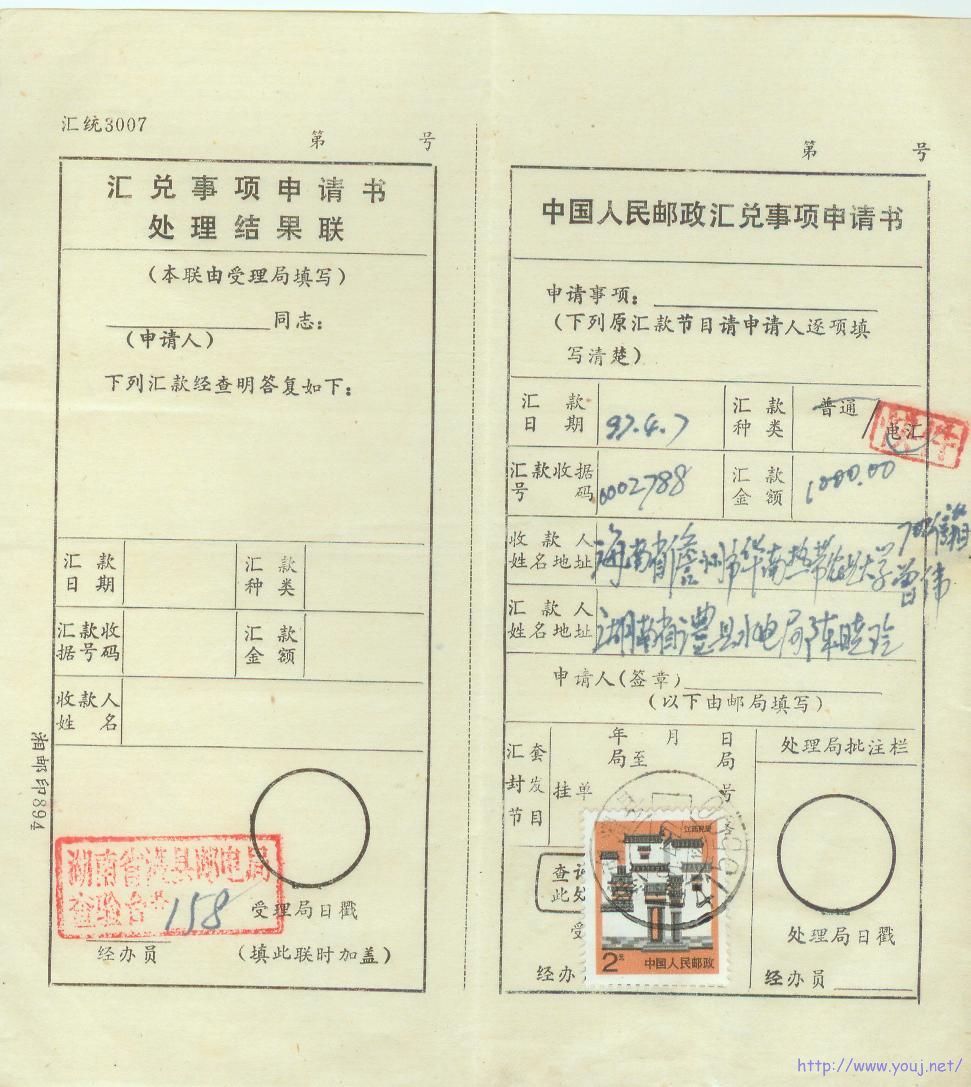 汇统3007
第 号
汇兑事项申请书
处理结果联
(本联由受理局填写)
同志:
(申请人)
下列汇款经查明答复如下:
汇款日期
汇款种类
汇款收据号码
汇款金额
收款人姓名
湘邮印894
湖南省澧县邮电局
查验台席 158
受理局日戳
经办员
(填此联时加盖)
第 号
中国人民邮政汇兑事项申请书
申请事项:
(下列原汇款节目请申请人逐项填
写清楚)
汇款日期 97.4.7
汇款种类 普通/电汇
汇款收据号码 0002788
汇款金额 1000.00
收款人姓名地址 海南省儋州市华南热带农业大学 曾伟
汇款人姓名地址 湖南省澧县水电局陈晓玲
申请人(签章)
(以下由邮局填写)
汇套封发节目
年 月 日
局至 局
挂单 号
查
此处
受
经办
江西民居
2元 中国人民邮政
处理局批注栏
处理局日戳
经办员
http://www.youj.net/